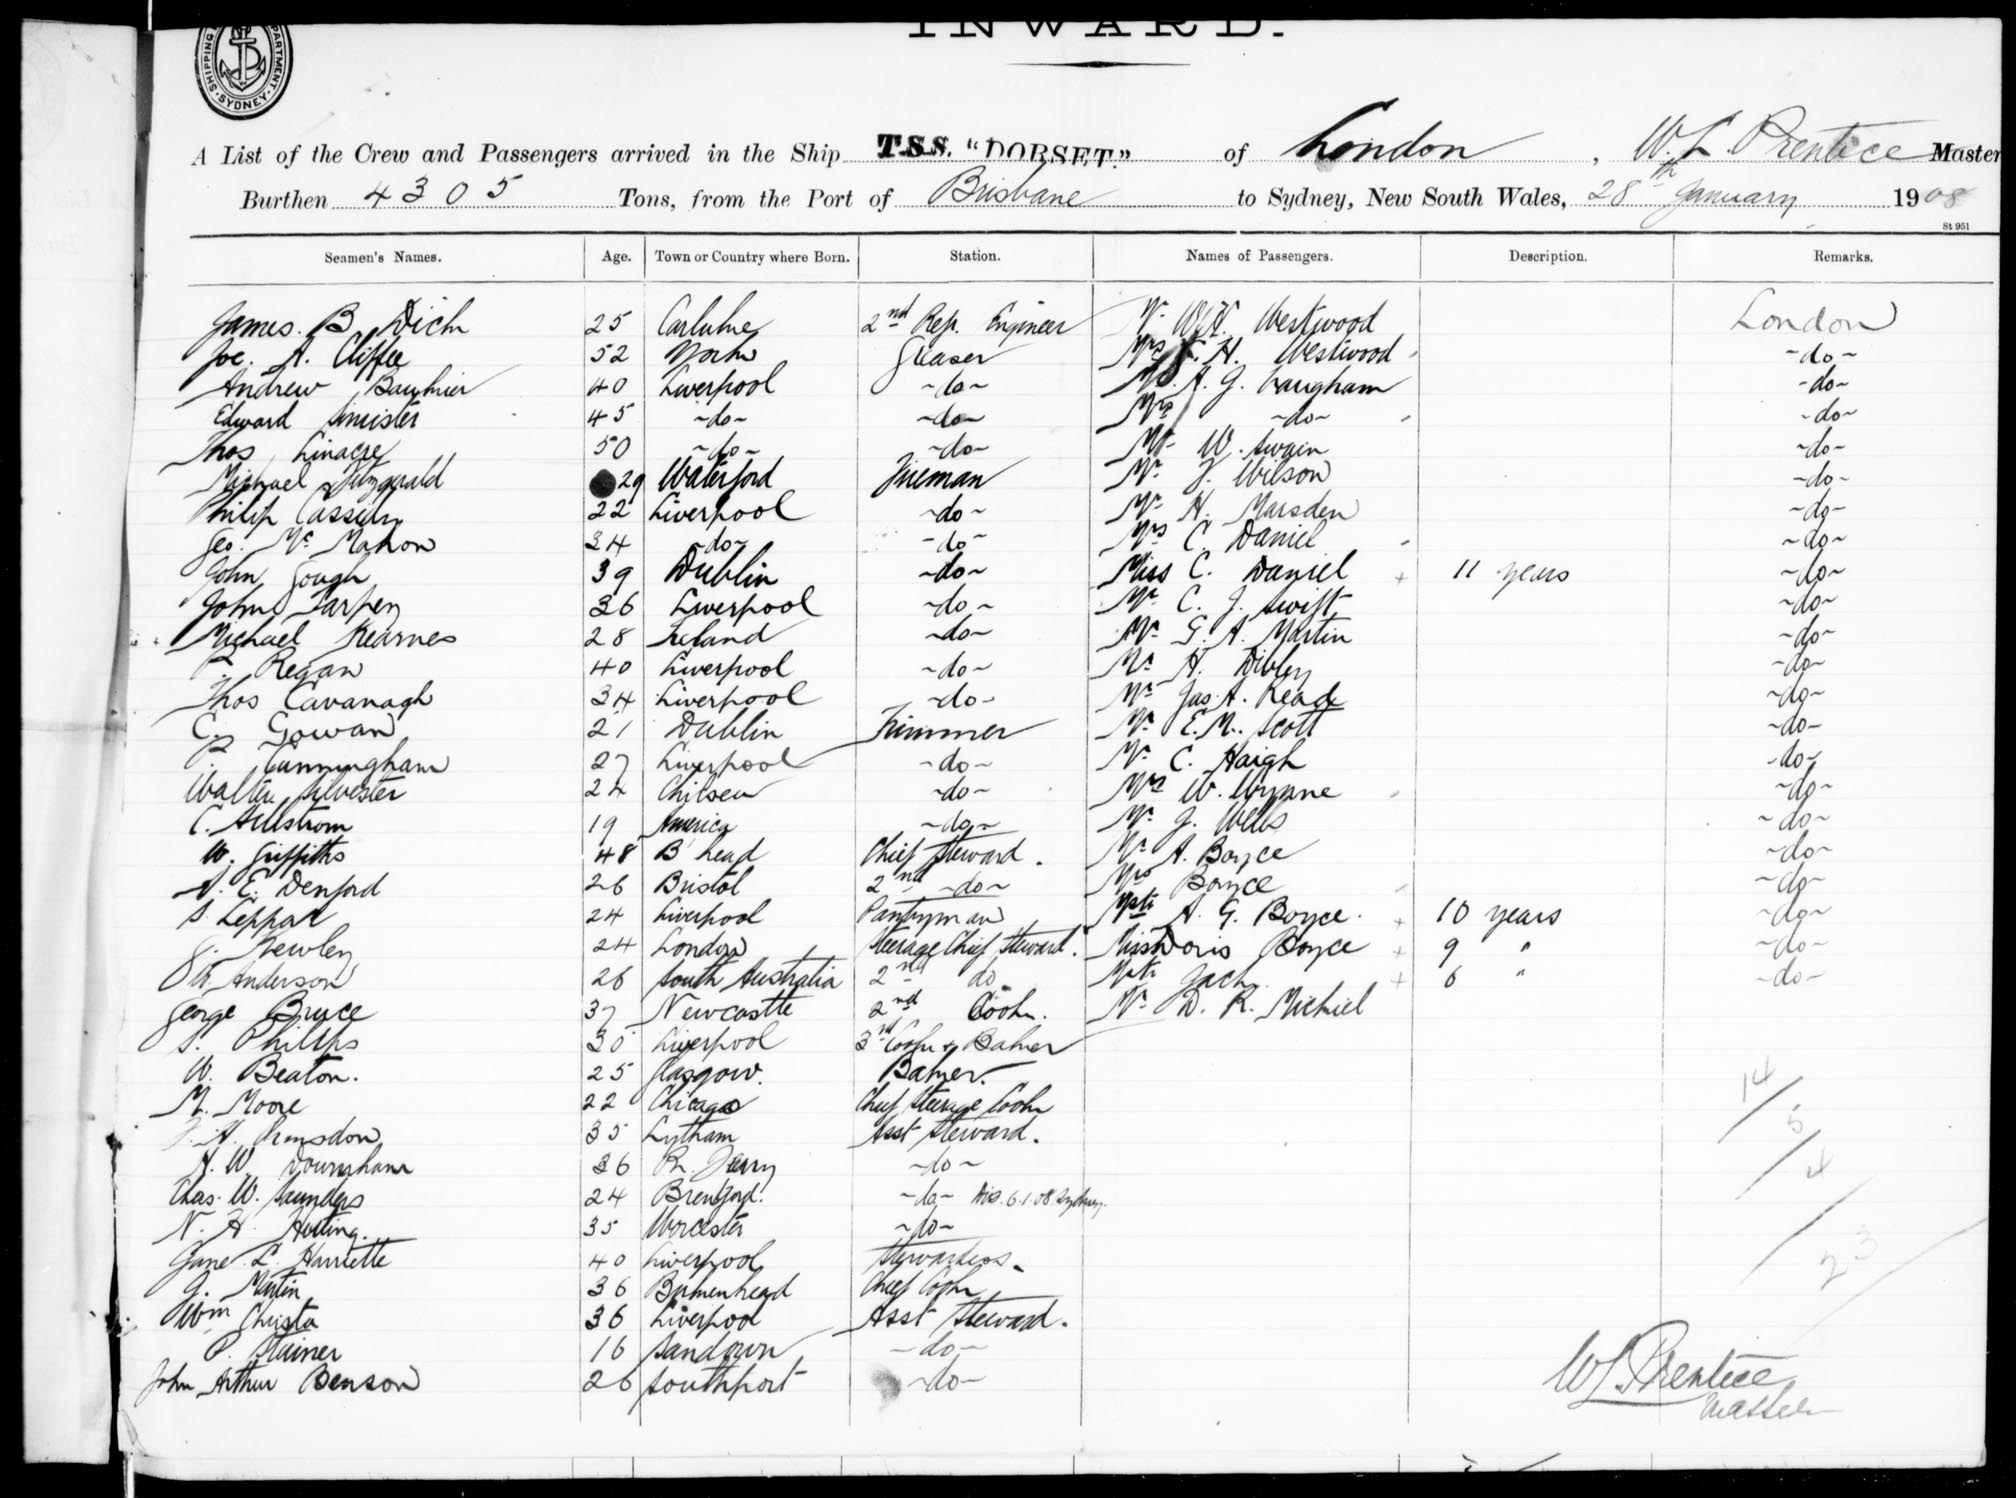 INWARD.
SHIPPING DEPARTMENT. SYDNEY
A List of the Crew and Passengers arrived in the Ship T.S.S. "DORSET." of London, W. L. Prentice Master
Burthen 4305 Tons, from the Port of Brisbane to Sydney, New South Wales, 28th January 1908
St 951
Seamen's Names. Age. Town or Country where Born. Station. Names of Passengers. Description. Remarks.
James. B. Dick 25 2nd Rep. Engineer Mr W. H. Westwood London
Joe. A. Cliffee 52 York Greaser Mrs H. Westwood -do-
Andrew 40 Liverpool -do- A. G. -do-
Edward Simister 45 -do- -do- Mrs -do- -do-
Thos Linacre 50 -do- -do- Mr W. Swain -do-
Michael Fitzgerald 29 Waterford Fireman Mr J. Wilson -do-
Philip 22 Liverpool -do- Mr H. Marsden -do-
Geo. Mc Mahon 34 -do- -do- Mrs C. Daniel -do-
John Gough 39 Dublin -do- Miss C. Daniel + 11 years -do-
John Tarpey 36 Liverpool -do- Mr C. J. Swift -do-
Michael Kearnes 28 Ireland -do- Mr G. A. Martin -do-
P. Regan 40 Liverpool -do- Mr H. Dibley -do-
Thos Cavanagh 34 Liverpool -do- Mr Jas. A. Reade -do-
C. Gowan 21 Dublin Trimmer Mr E. M. Scott -do-
P. Cunningham 27 Liverpool -do- Mr C. Haigh -do-
Walter Silvester 24 Chilsea -do- Mrs W. Wynne -do-
C. Allstrom 19 America -do- Mr J. Wells -do-
W. Griffiths 48 B'head Chief Steward. Mr A. Boyce -do-
E. Denford 26 Bristol 2nd -do- Mrs Boyce -do-
S. Leppar 24 Liverpool Pantryman Mstr A. G. Boyce. + 10 years -do-
J. Newley 24 London Steerage Chief Steward. Miss Doris Boyce + 9 " -do-
W. Anderson 26 South Australia 2nd do Mstr Jack + 6 " -do-
George Bruce 37 Newcastle 2nd Cook. Mr D. R. Michiel
S. Phillips 30 Liverpool 3rd Cook & Baker
W. Beaton. 25 Glasgow. Baker.
M. Moore 22 Chicago Chief Steerage Cook
H. 35 Lytham Asst Steward.
A. W. Downham 36 -do-
Chas. W. Saunders 24 Brenford. -do- Dis. 6.1.08 Sydney.
N. H. 35 Worcester -do-
Jane L. Harriette 40 Liverpool Stewardess.
G. Martin 36 Birkenhead Chief Cook
Wm Christa 36 Liverpool Asst Steward.
P. Stainer 16 Sandown -do-
John Arthur Benson 26 Southport -do-
14/
5/
4/
23
W L Prentice
Master